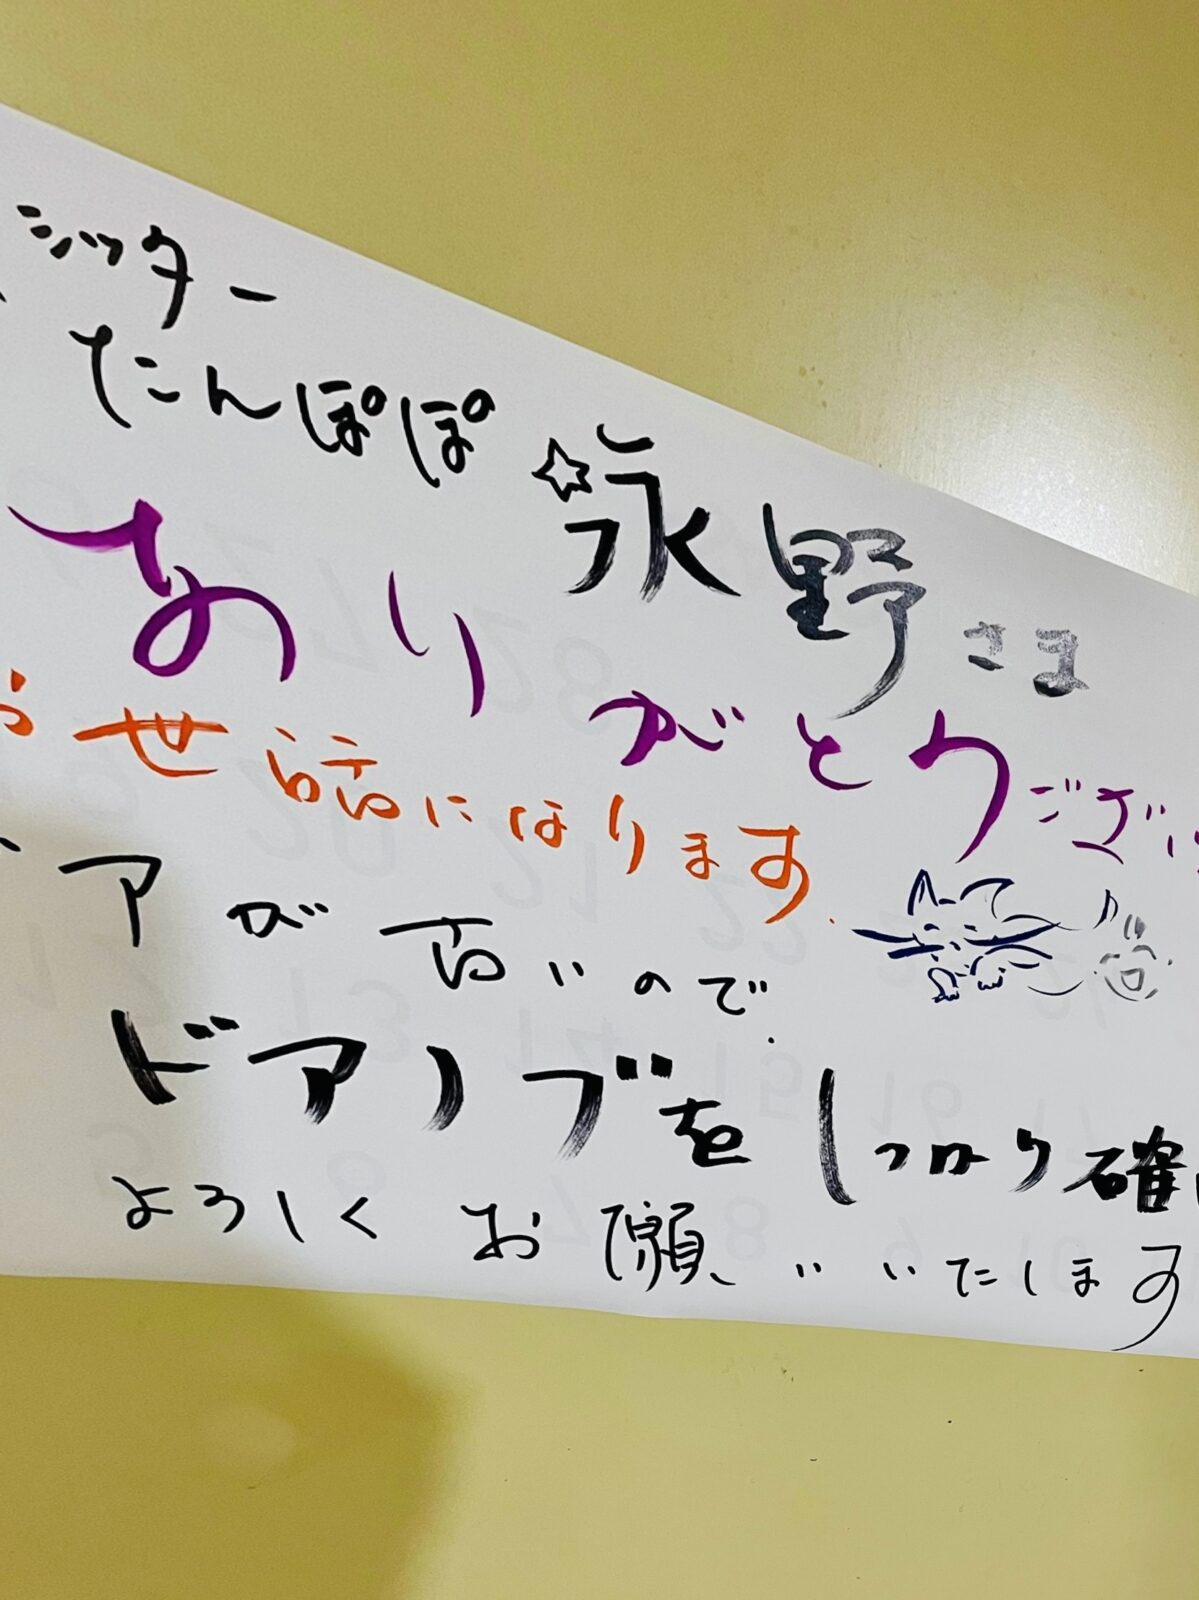 シッター
たんぽぽ☆永野さま
ありがとうござい
お世話になります.
ドアが古いので
ドアノブをしっかり確
よろしくお願いいたします